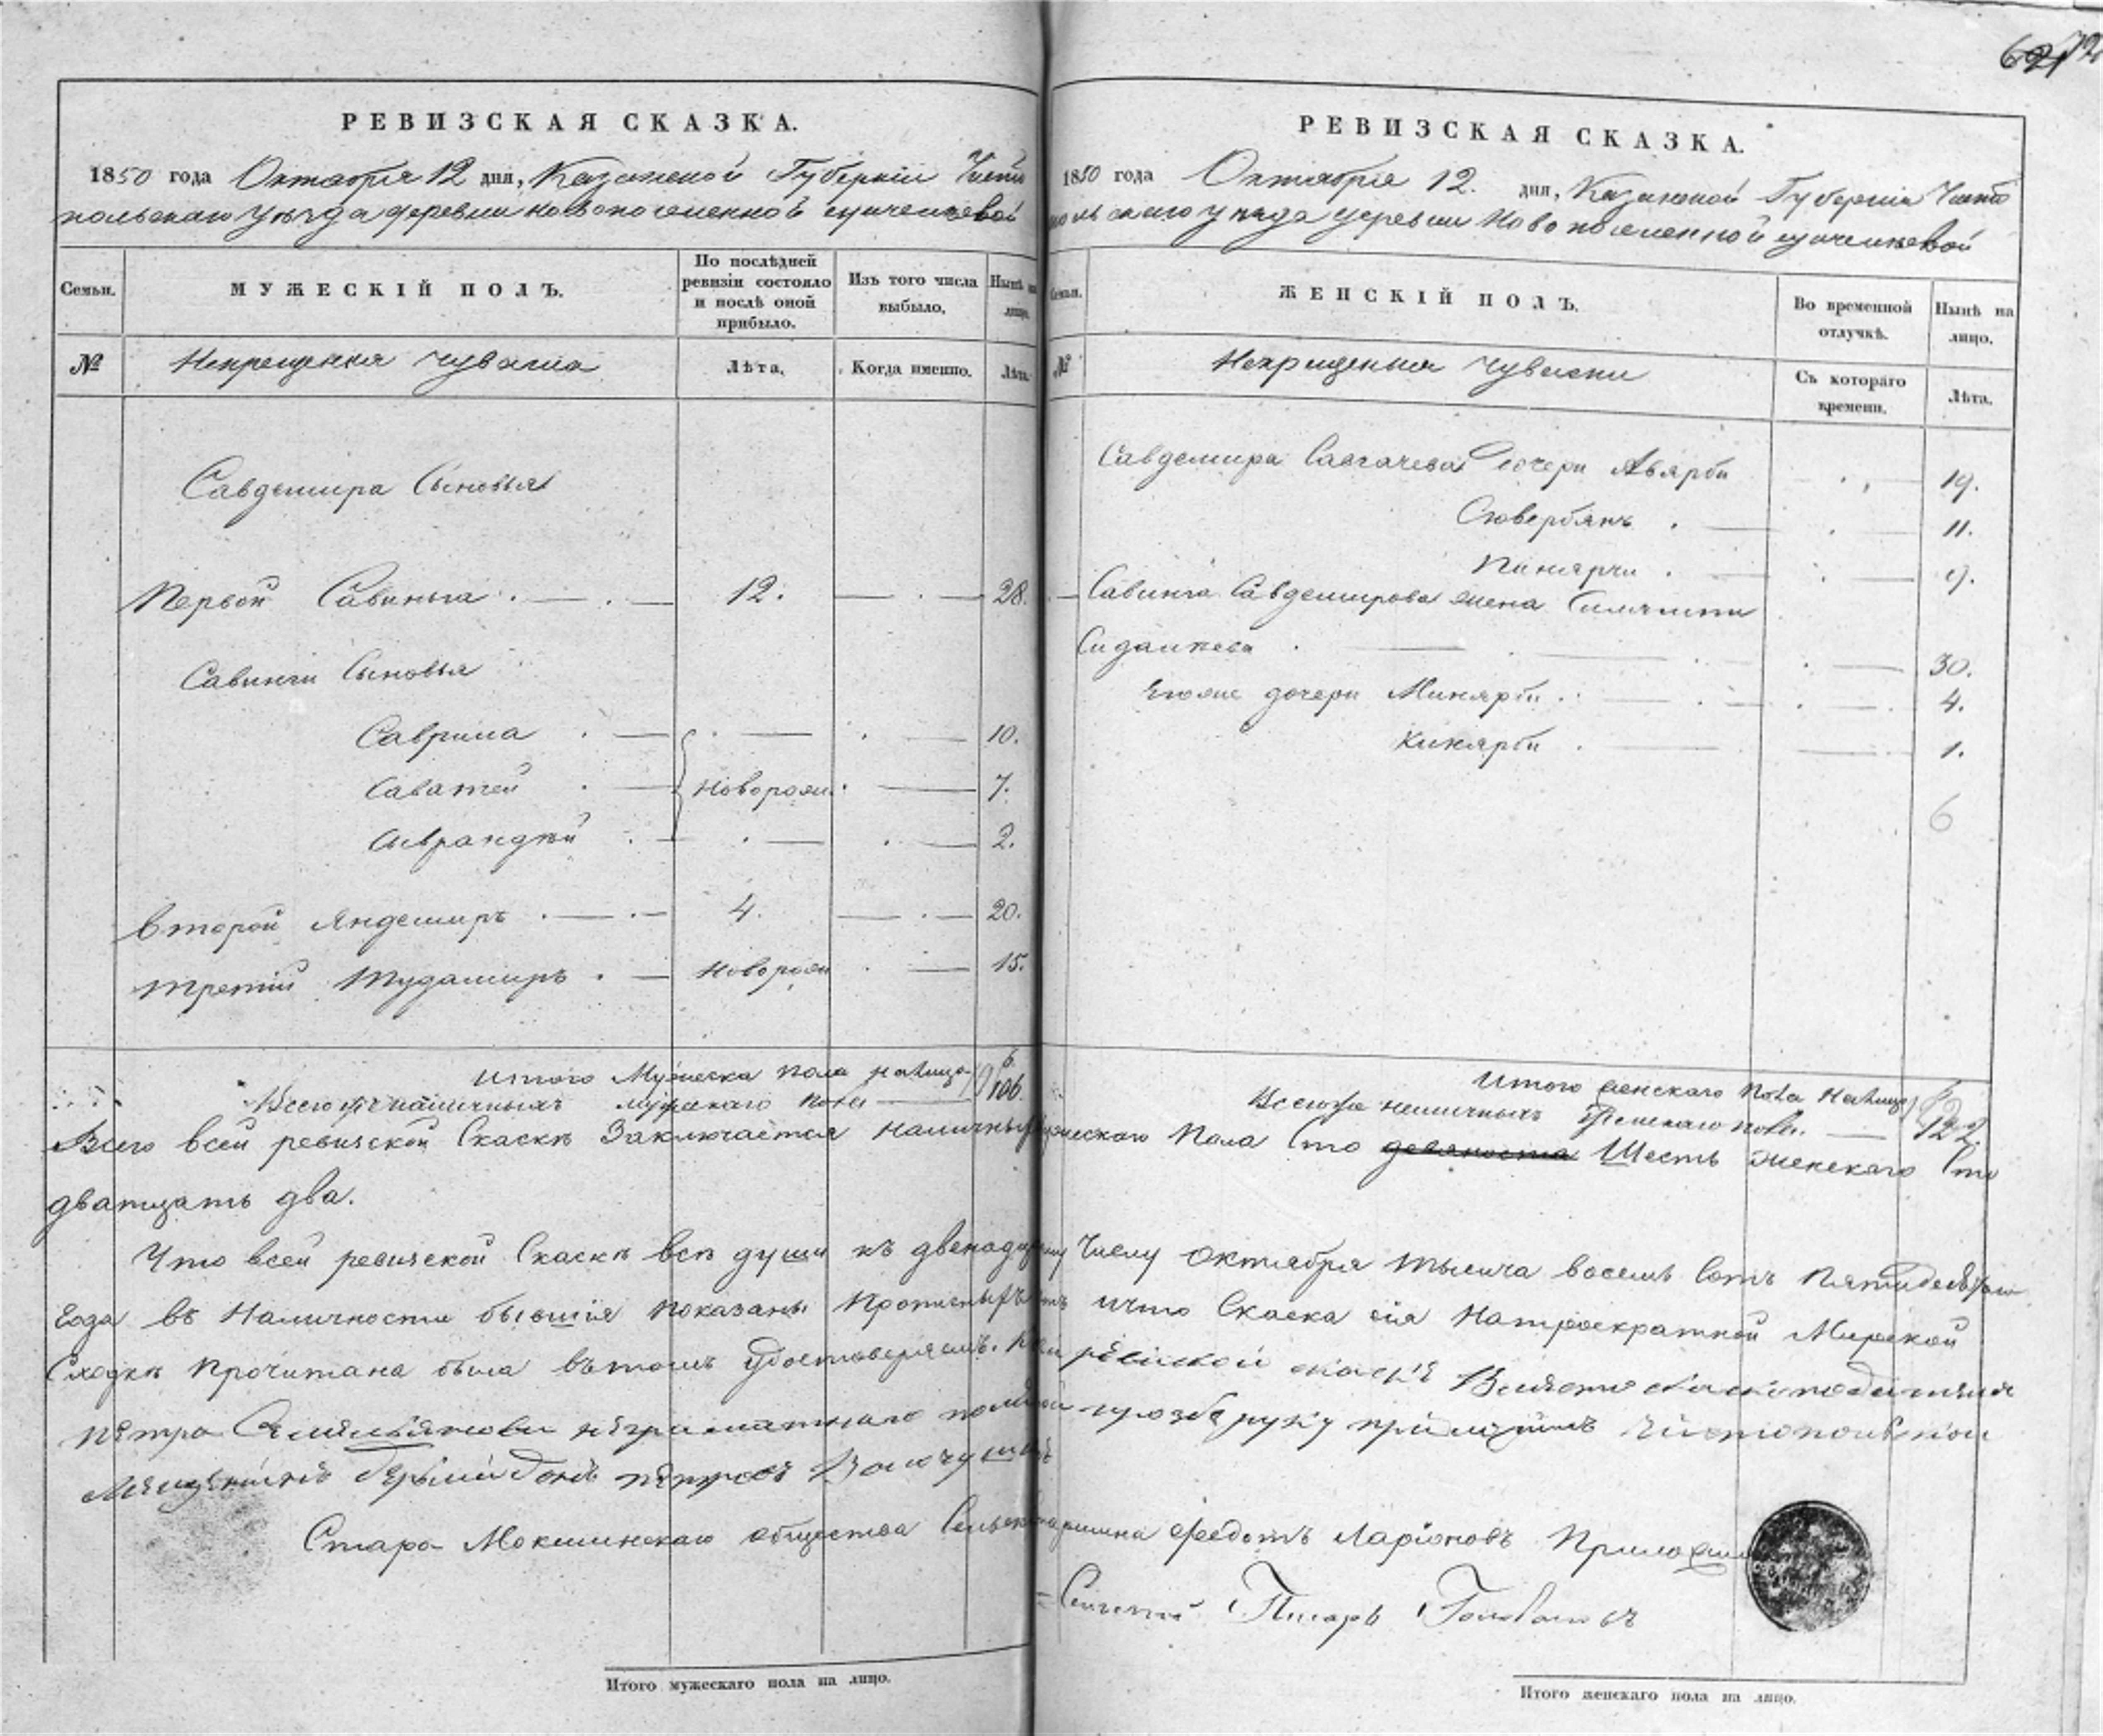 РЕВИЗСКАЯ СКАЗКА.
1850 года Октября 12 дня, Казанской Губерніи Чисто
польскаго уѣзда деревни новопоселенной
Семьи.
МУЖЕСКІЙ ПОЛЪ.
По послѣдней ревизіи состояло и послѣ оной прибыло.
Изъ того числа выбыло,
Нынѣ на лицо.
№
Некрещеныя чуваша
Лѣта,
Когда именно.
Лѣта.
Савдемира Сыновья
Первой Савинька 12. 28.
Савинги Сыновья
Саврима 10.
Саватей Новорож. 7.
2.
Второй Яндемиръ 4. 20.
Третій Тудамиръ Новорож 15.
Итого Мужеска пола на лицо 6
Всего наличныхъ мужскаго пола 106.
РЕВИЗСКАЯ СКАЗКА.
1850 года Октября 12. дня, Казанской Губерніи Чисто
польскаго уѣзда деревни Новопоселенной
Семьи.
ЖЕНСКІЙ ПОЛЪ.
Во временной отлучкѣ.
Нынѣ на лицо.
№
Некрещеныя Чуваски
Съ котораго времени.
Лѣта.
Савдемира Савгачева дочери Авярби 19.
Сювербянъ 11.
Пинярчи 9.
Савинги Савдемирова жена
30.
дочери Минярби 4.
Кинярби 1.
6
Итого женскаго пола на лицо
Всего наличныхъ женскаго пола. 122
Всего всей ревизской Скаскѣ Заключается наличныхъ мужескаго Пола Сто девяноста Шесть женскаго Сто
дватцать два.
Что всей ревизской Скаскѣ всѣ души къ двенадцатому Числу Октября тысяча восемь Сотъ
Года въ Наличности бывшія показаны Прописныхъ нѣтъ ичто Скаска сія Натроекратной Мирской
Сходкѣ Прочитана была вътомъ удостоверяемъ. Ксей ревиской скаскѣ
Петра неграматнаго прозбѣ руку
Петровъ
Старо Мокшинскаго общества Сельской старшина Федотъ Ларіоновъ Приложилъ
Сельской Писарь
Итого мужескаго пола на лицо.
Итого женскаго пола на лицо.